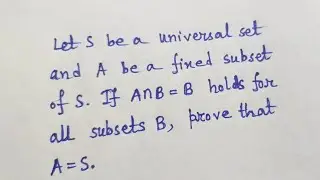 Let S be a universal set
and A be a fixed subset
of S. If A∩B = B holds for
all subsets B, prove that
A = S.